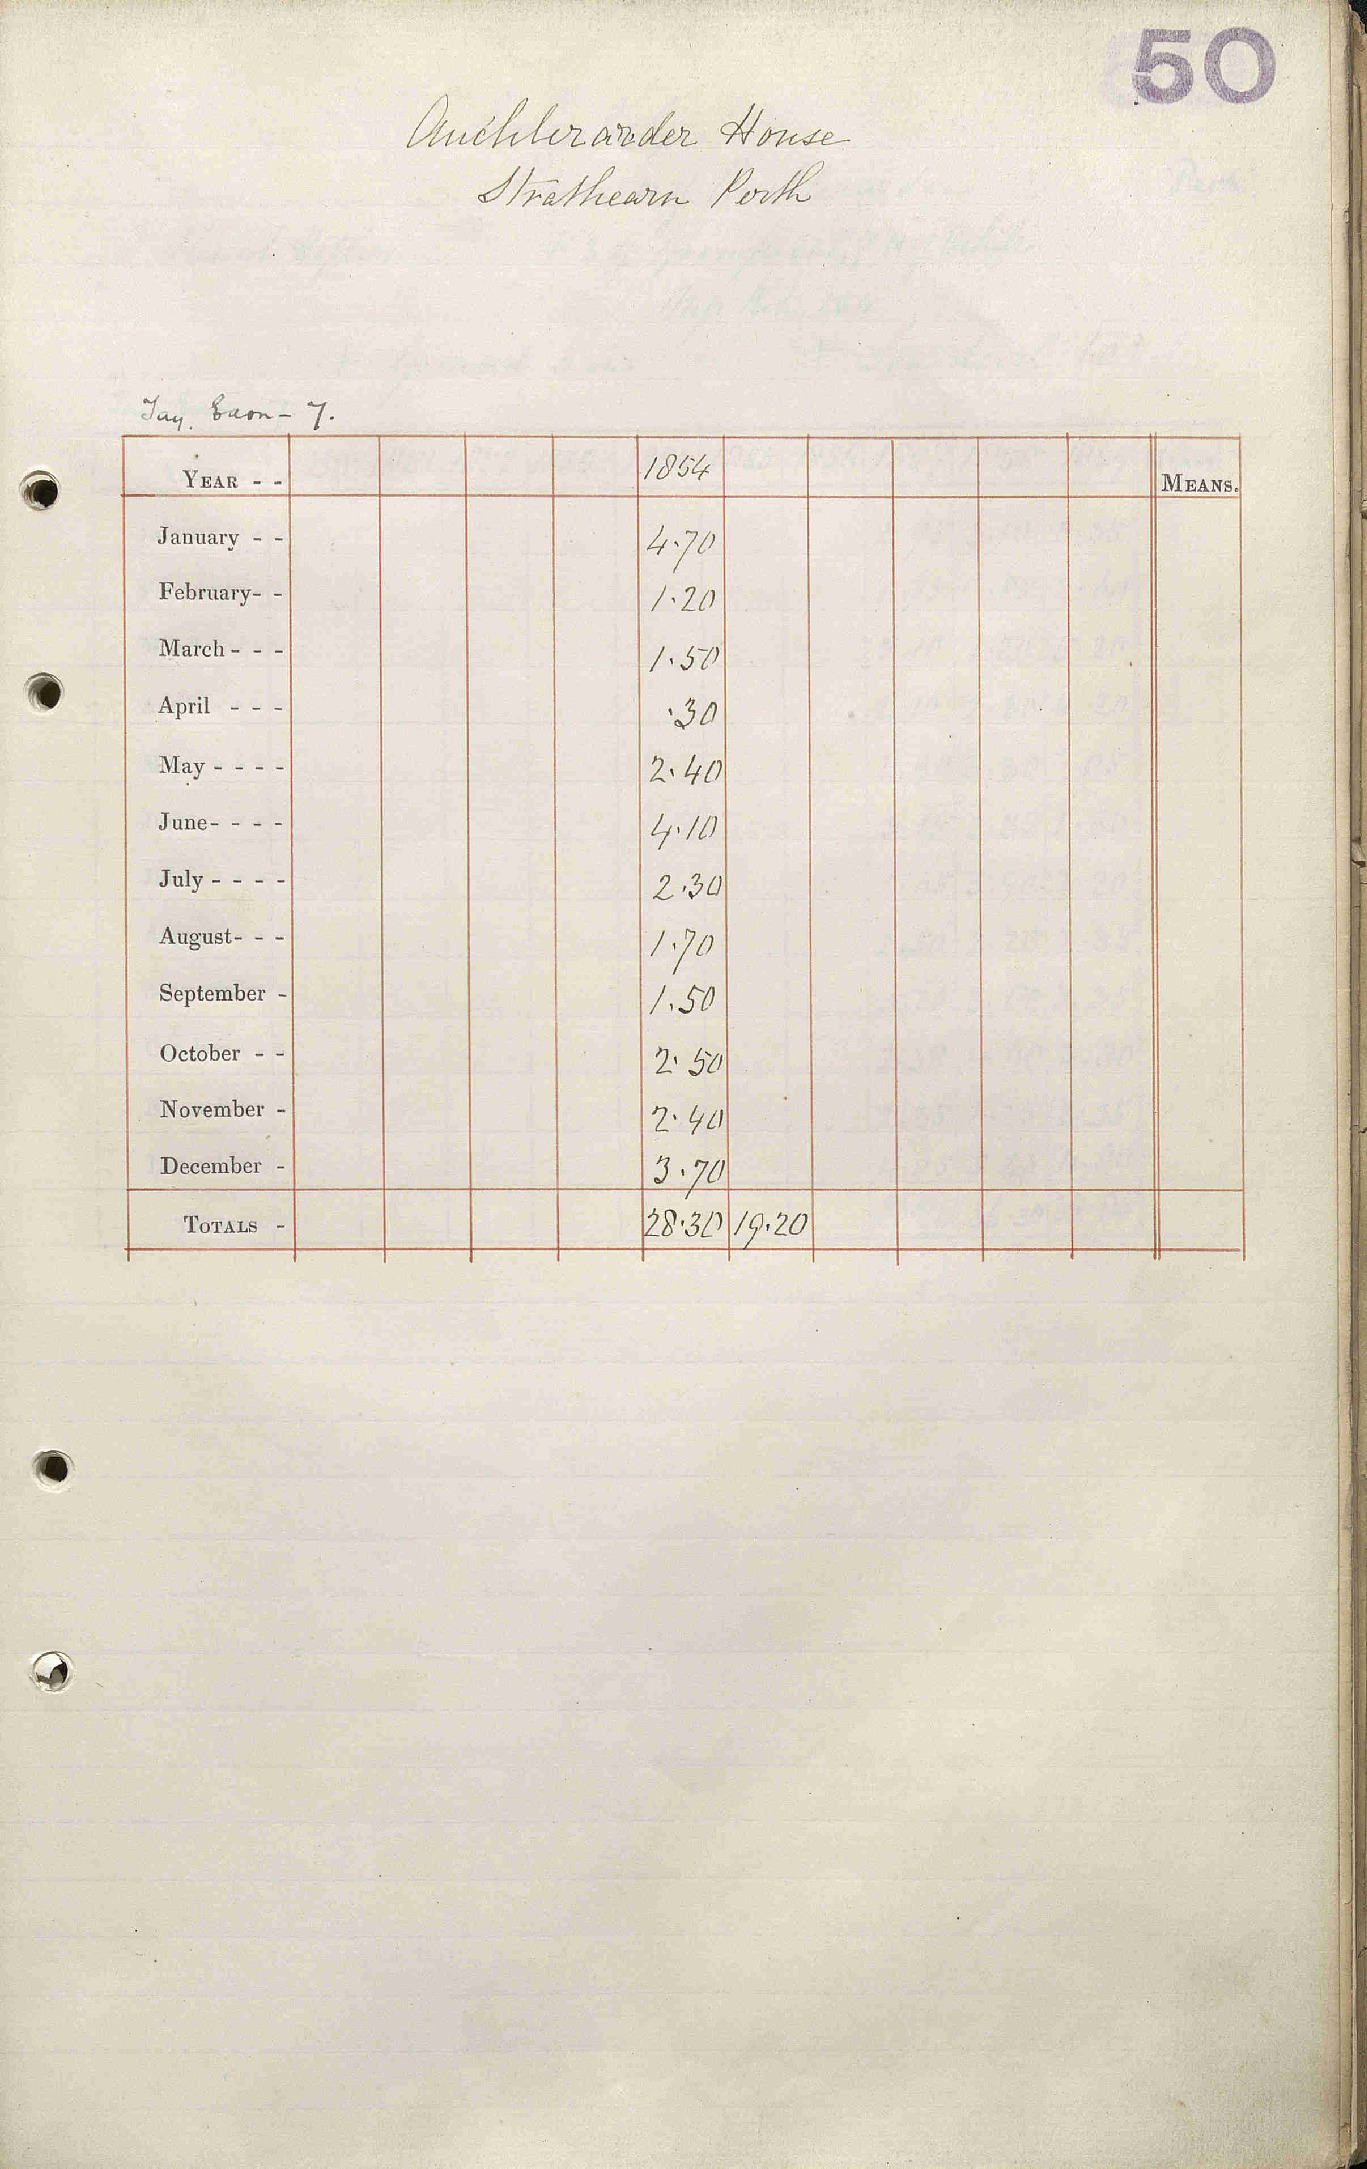 50
Auchterarder House
Strathearn Perth
Tay. Earn - 7.
YEAR - - 1854 MEANS.
January - - 4.70
February - - 1.20
March - - - 1.50
April - - - .30
May - - - - 2.40
June - - - - 4.10
July - - - - 2.30
August - - - 1.70
September - 1.50
October - - 2.50
November - 2.40
December - 3.70
TOTALS - 28.30 19.20